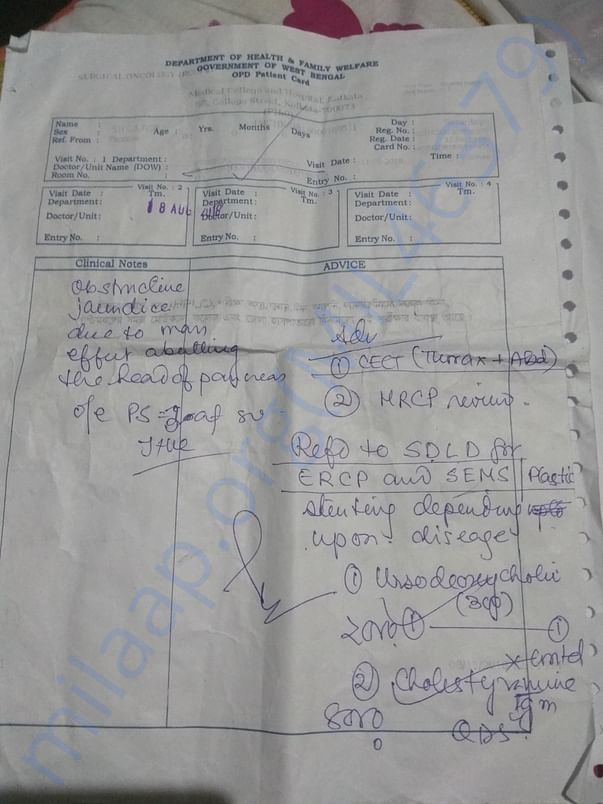 DEPARTMENT OF HEALTH & FAMILY WELFARE
GOVERNMENT OF WEST BENGAL
OPD Patient Card
Medical College and Hospital, Kolkata
Name :
Sex : Age : Yrs. Months Days
Ref. From :
Day :
Reg. No. :
Reg. Date :
Card No. :
Visit No. : 1 Department :
Doctor/Unit Name (DOW) :
Room No. :
Visit Date : Time :
Entry No. :
Visit No. : 2
Visit Date : Tm.
Department:
18 AUG
Doctor/Unit:
Entry No. :
Visit No. : 3
Visit Date : Tm.
Department:
Doctor/Unit:
Entry No. :
Visit No. : 4
Visit Date : Tm.
Department:
Doctor/Unit:
Entry No. :
Clinical Notes
ADVICE
obstructive
jaundice
due to mass
effect abutting
the head of pancreas
o/e PS
Adv
① CECT (Thorax + Abd)
② MRCP review.
Refd to SDLD for
ERCP and SEMS Plastic
stenting depending
upon disease
① Ursodeoxycholic
① ①
x contd
② Cholestyramine
QDS
milaap.org